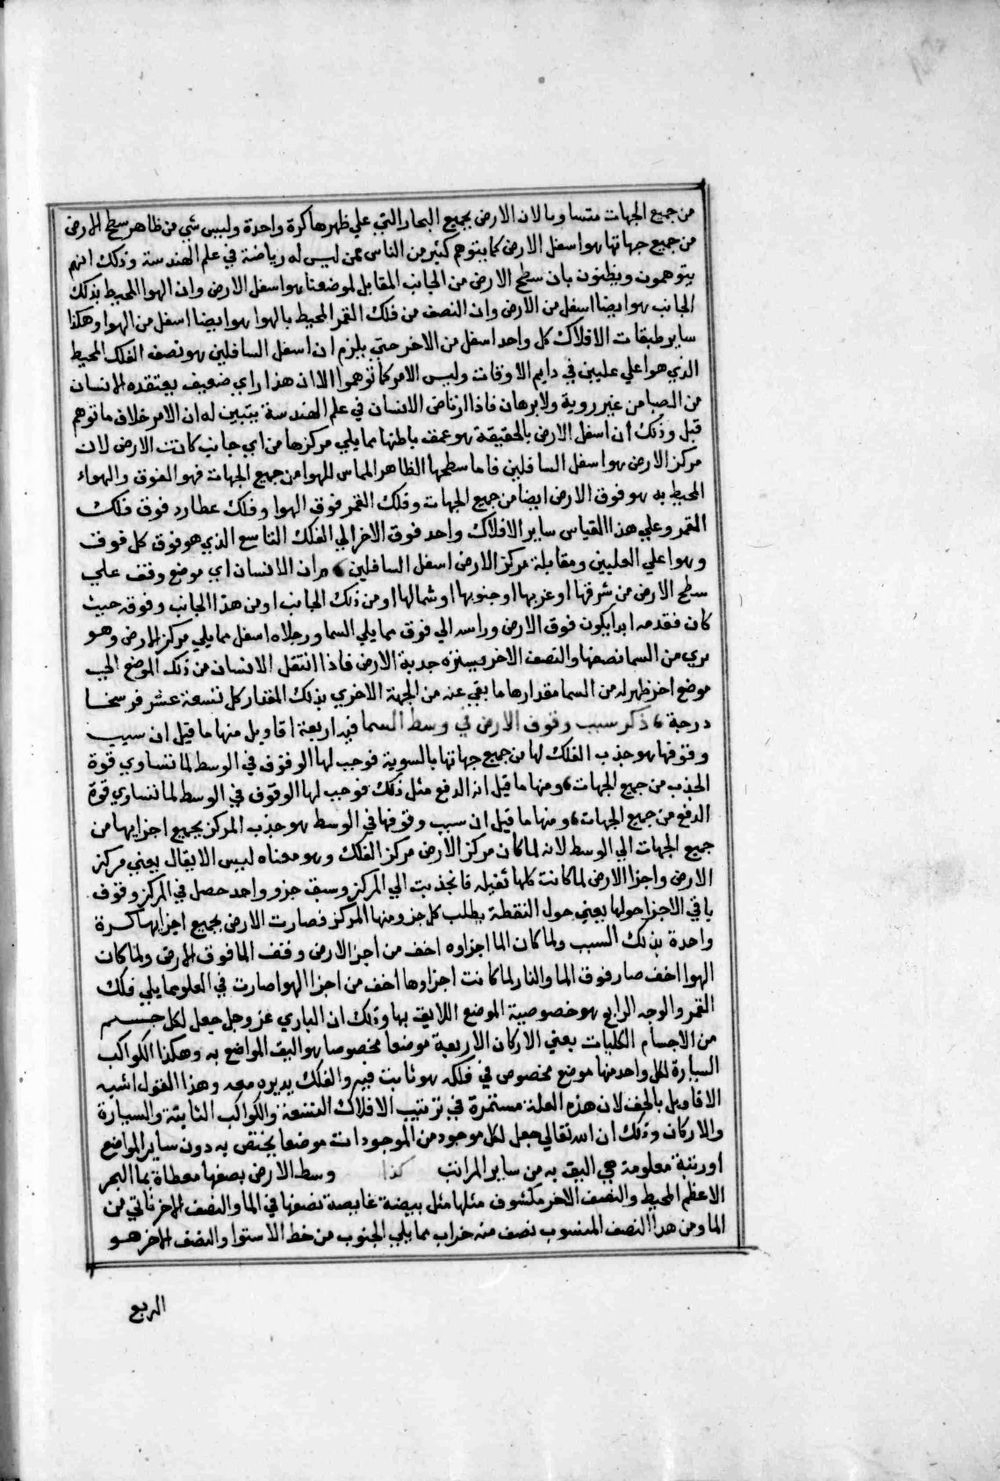 من جميع الجهات متساويا لان الارض بجميع البحار التي علي ظهرها كرة واحدة وليس شي من ظاهر سطح الارض
من جميع جهاتها هو اسفل الارض كما يتوهم كثير من الناس ممن ليس له رياضة في علم الهندسة وذلك انهم
يتوهمون ويظنون بان سطح الارض من الجانب المقابل لموضعنا هو اسفل الارض وان الهوا المحيط بذلك
الجانب هو ايضا اسفل من الارض وان النصف من فلك القمر المحيط بالهوا هو ايضا اسفل من الهوا وهكذا
ساير طبقات الافلاك كل واحد اسفل من الاخر حتي يلزم ان اسفل السافلين هو نصف الفلك المحيط
الذي هو اعلي عليين في دايم الاوقات وليس الامر كما توهموا الا ان هذا راي ضعيف يعتقده الانسان
من الصبا من غير روية ولا برهان فاذا ارتاض الانسان في علم الهندسة يتبين له ان الامر خلاف ما توهم
قبل وذلك ان اسفل الارض بالحقيقة هو عمق باطنها مما يلي مركزها من اي جانب كانت الارض لان
مركز الارض هو اسفل السافلين فاما سطحها الظاهر المماس للهوا من جميع الجهات فهو الفوق والهواء
المحيط به هو فوق الارض ايضا من جميع الجهات وفلك القمر فوق الهوا وفلك عطارد فوق فلك
القمر وعلي هذا القياس ساير الافلاك واحد فوق الاخر الي الفلك التاسع الذي هو فوق كل فوق
وهو اعلي العليين ومقابلة مركز الارض اسفل السافلين ان الانسان اي موضع وقف علي
سطح الارض من شرقها او غربها او جنوبها او شمالها او من ذلك الجانب او من هذا الجانب وفوقه حيث
كان فقدمه ابدا يكون فوق الارض وراسه الي فوق مما يلي السما ورجلاه اسفل مما يلي مركز الارض وهو
يري من السما نصفها والنصف الاخر يستره حدبة الارض فاذا انتقل الانسان من ذلك الموضع الي
موضع اخر ظهر له من السما مقدار ما بقي عنه من الجهة الاخري بذلك المقدار كل تسعة عشر فرسخا
درجة ذكر سبب وقوف الارض في وسط السما فيه اربعة اقاويل منها ما قيل ان سبب
وقوفها هو جذب الفلك لها من جميع جهاتها بالسوية فوجب لها الوقوف في الوسط لما تتساوي قوة
الجذب من جميع الجهات ومنها ما قيل انه الدفع مثل ذلك فوجب لها الوقوف في الوسط لما تتساوي قوة
الدفع من جميع الجهات ومنها ما قيل ان سبب وقوفها في الوسط هو جذب المركز بجميع اجزايها من
جميع الجهات الي الوسط لانه لما كان مركز الارض مركز الفلك وهو معناه ليس الايقال يعني مركز
الارض واجزا الارض لما كانت كلها ثقيله فانجذبت الي المركز وسبق جزو واحد حصل في المركز وقوف
باقي الاجزا حولها يعني حول النقطة يطلب كل جزو منها المركز فصارت الارض بجميع اجزايها كرة
واحدة بذلك السبب ولما كان الما اجزاوه اخف من اجزا الارض وقف الما فوق الارض ولما كان
الهوا اخف صار فوق الما والنار لما كانت اجزاوها اخف من اجزا الهوا صارت في العلو مما يلي فلك
القمر والوجه الرابع هو خصوصية الموضع اللايق بها وذلك ان الباري عز وجل جعل لكل جسم
من الاجسام الكليات يعني الاركان الاربعة موضعا مخصوصا هو اليق المواضع به وهكذا الكواكب
السيارة لكل واحد منها موضع مخصوص في فلكه هو ثابت فيه والفلك يديره معه وهذا القول اشبه
الاقاويل بالحق لان هذه العلة مستمرة في ترتيب الافلاك التسعة والكواكب الثابتة والسيارة
والاركان وذلك ان الله تعالي جعل لكل موجود من الموجودات موضعا يختص به دون ساير المواضع
او رتبة معلومة هي اليق به من ساير المراتب كذا وسط الارض نصفها مغطاة بما البحر
الاعظم المحيط والنصف الاخر مكشوف مثلها مثل بيضة غايصة نصفها في الما والنصف الاخر ناتي من
الما ومن هذا النصف المنسوب نصف منه خراب مما يلي الجنوب من خط الاستوا والنصف الاخر هو
الربع